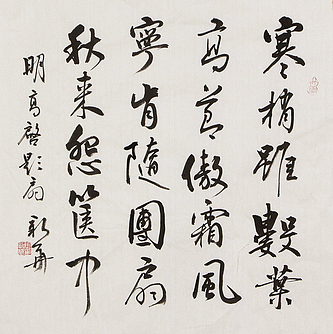 寒梢雖數葉
高節傲霜風
寧肯隨團扇
秋來怨篋中
明高啓題扇 新華